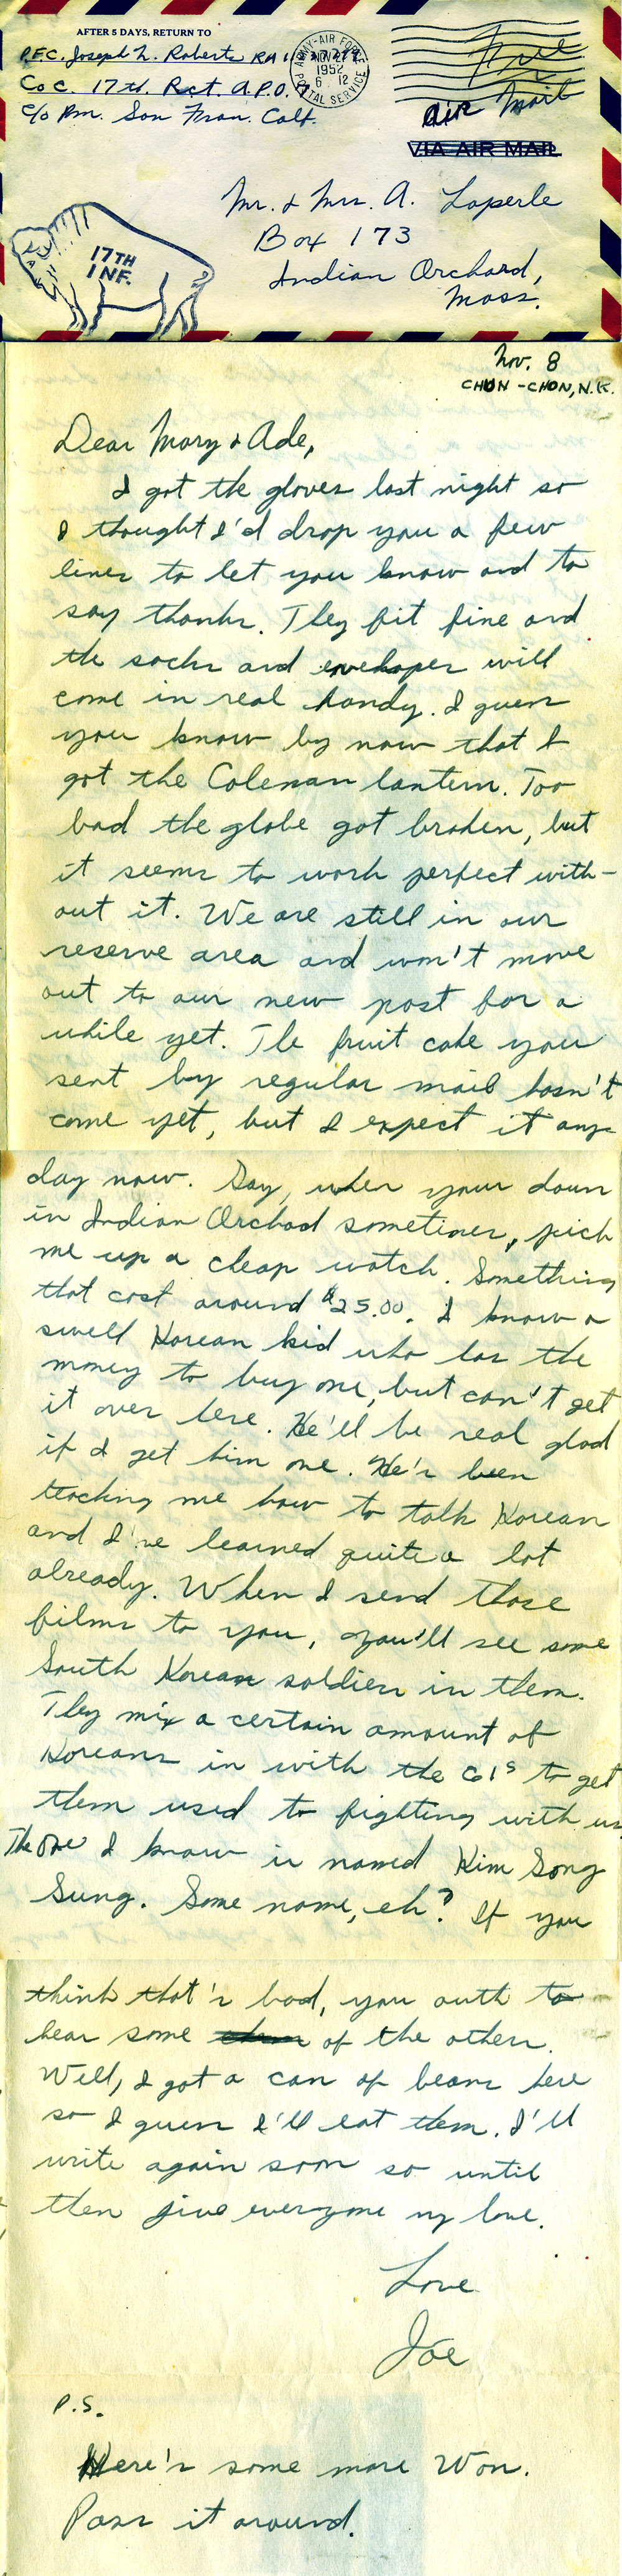 AFTER 5 DAYS, RETURN TO
P.F.C. Joseph L. Roberts RA 1
Co C. 17th. Rct. A.P.O. 7
c/o Pm. San Fran. Calf.
ARMY-AIR FORCE
NOV
1952
6 12
POSTAL SERVICE
Free
Air Mail
VIA AIR MAIL
Mr. & Mrs. A. Laperle
Box 173
Indian Orchard,
Mass.
17TH
INF.
Nov. 8
CHUN-CHON, N.K.
Dear Mary & Ade,
I got the gloves last night so
I thought I'd drop you a few
lines to let you know and to
say thanks. They fit fine and
the socks and envelopes will
come in real handy. I guess
you know by now that I
got the Coleman lantern. Too
bad the globe got broken, but
it seems to work perfect with-
out it. We are still in our
reserve area and won't move
out to our new post for a
while yet. The fruit cake you
sent by regular mail hasn't
come yet, but I expect it any
day now. Say, when your down
in Indian Orchad sometimes, pick
me up a cheap watch. Something
that cost around $25.00. I know a
swell Korean kid who has the
money to buy one, but can't get
it over here. He'll be real glad
if I get him one. He's been
teaching me how to talk Korean
and I've learned quite a lot
already. When I send those
films to you, you'll see some
South Korean soldiers in them.
They mix a certain amount of
Koreans in with the GIs to get
them used to fighting with us.
The one I know is named Kim Song
Sung. Some name, eh? If you
think that's bad, you outh to
hear some of the others.
Well, I got a can of beans here
so I guess I'll eat them. I'll
write again soon so until
then give everyone my love.
Love
Joe
P.S.
Here's some more Won.
Pass it around.